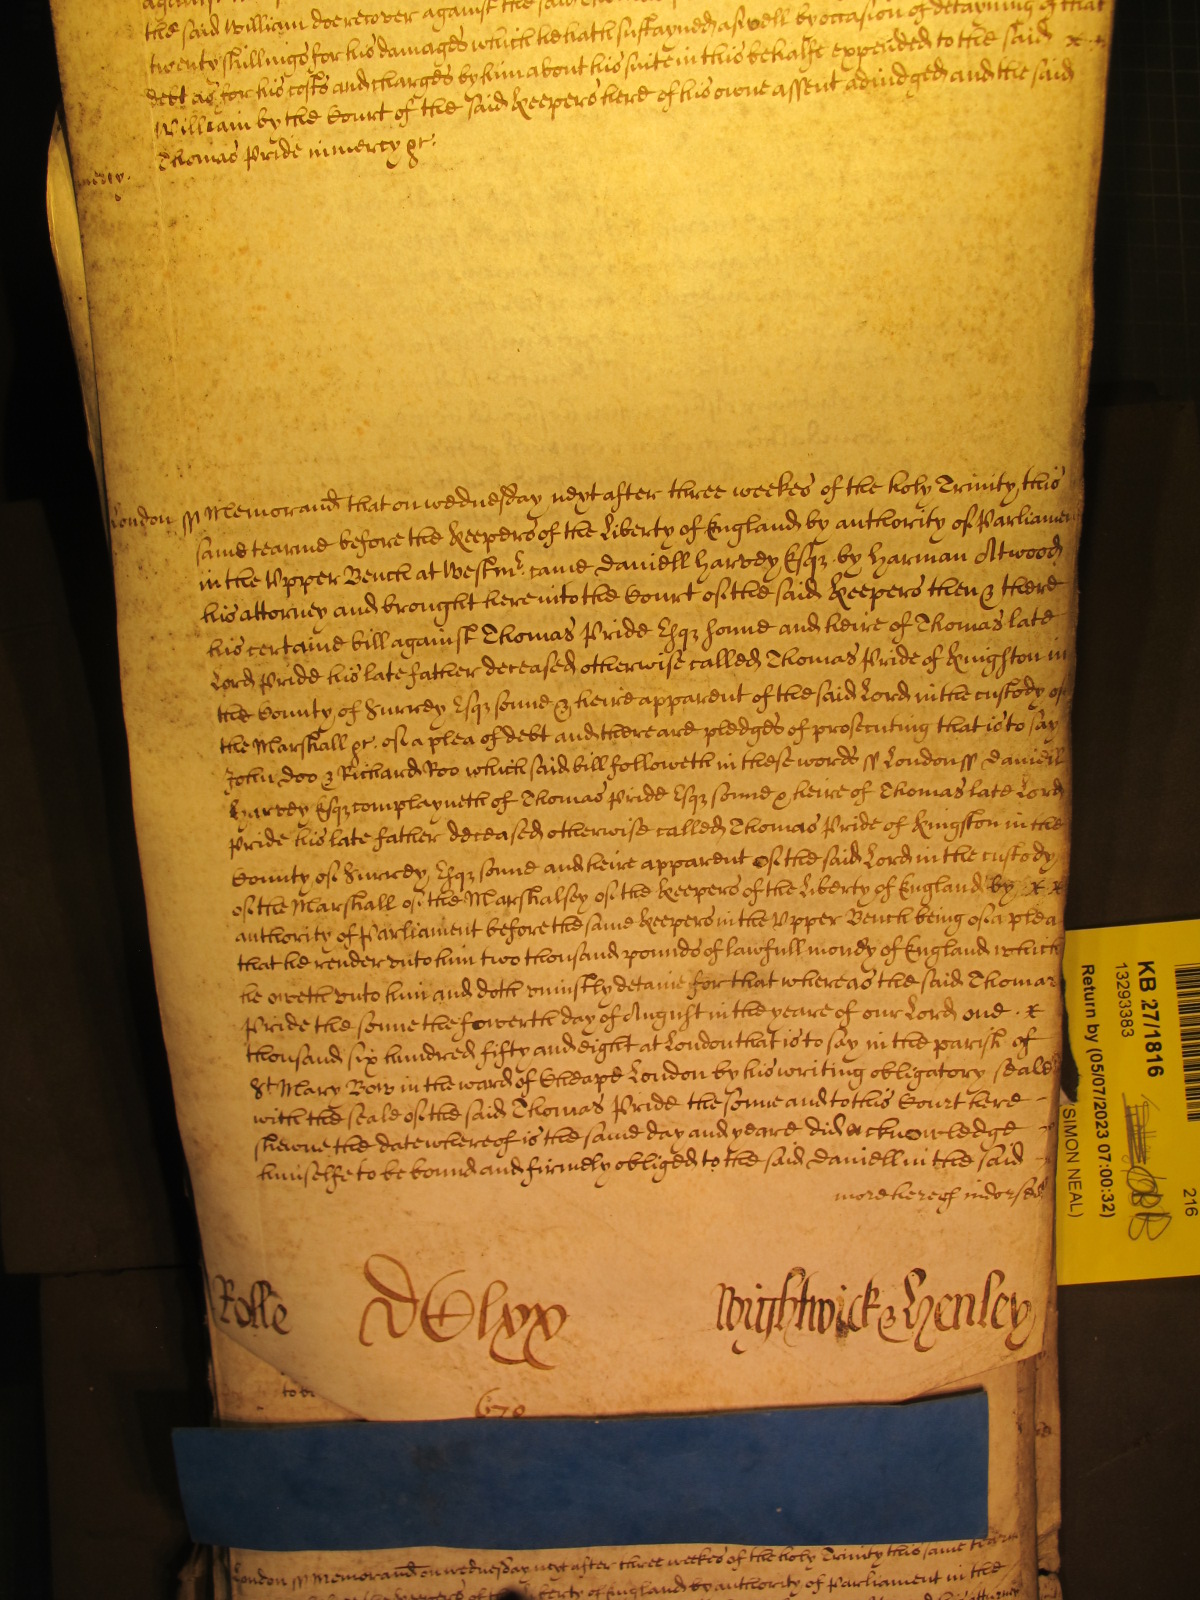 the said William doe recover against the said
twenty shillings for his damages which he hath sustayned aswell by occasion of detayning of that
debt as for his costs and charges by him about his suite in this behalfe expended to the said x x
William by the Court of the said Keepers here of his owne assent adiudged and the said
Thomas Pride in mercy &c.
mercy.
London ss Memorand that on wednesday next after three weekes of the holy Trinity this
same tearme before the Keepers of the Liberty of England by authority of Parliamen
in the Vpper Bench at Westmr. came Daniell Harvey Esqz by Harman Atwood
his attorney and brought here into the Court of the said Keepers then & there
his certaine bill against Thomas Pride Esqz sonne and heire of Thomas late
Lord Pride his late father deceased otherwise called Thomas Pride of Kingston in
the County of Surrey Esqz sonne & heire apparent of the said Lord in the custody of
the Marshall &c. of a plea of debt and there are pledges of prosecuting that is to say
John Doo & Richard Roo which said bill followeth in these words ss London ss Daniell
Harvey Esqz complayneth of Thomas Pride Esqz sonne & heire of Thomas late Lord
Pride his late father deceased otherwise called Thomas Pride of Kingston in the
County of Surrey Esqz sonne and heire apparent of the said Lord in the custody
of the Marshall of the Marshalsey of the Keepers of the Liberty of England by x x
authority of Parliament before the same Keepers in the Vpper Bench being of a plea
that he render vnto him two thousand pounds of lawfull money of England which
he oweth vnto him and doth vniustly detaine for that whereas the said Thomas
Pride the sonne the fowerth day of August in the yeare of our Lord one . x
thousand six hundred fifty and eight at London that is to say in the parish of
St Mary Bow in the ward of Cheape London by his writing obligatory seale
with the seale of the said Thomas Pride the sonne and to this Court here -
shewne the date whereof is the same day and yeare did acknowledge -
himselfe to be bound and firmely obliged to the said Daniell in the said -
more hereof indorsed
Rolle DClxx Wightwick & Henley
670
London ss Memorand on wednesday next after three weekes of the holy Trinity this same tearme
berty of England by authority of Parliament in the
KB 27/1816
13293383
Return by (05/07/2023 07:00:32)
(SIMON NEAL)
216